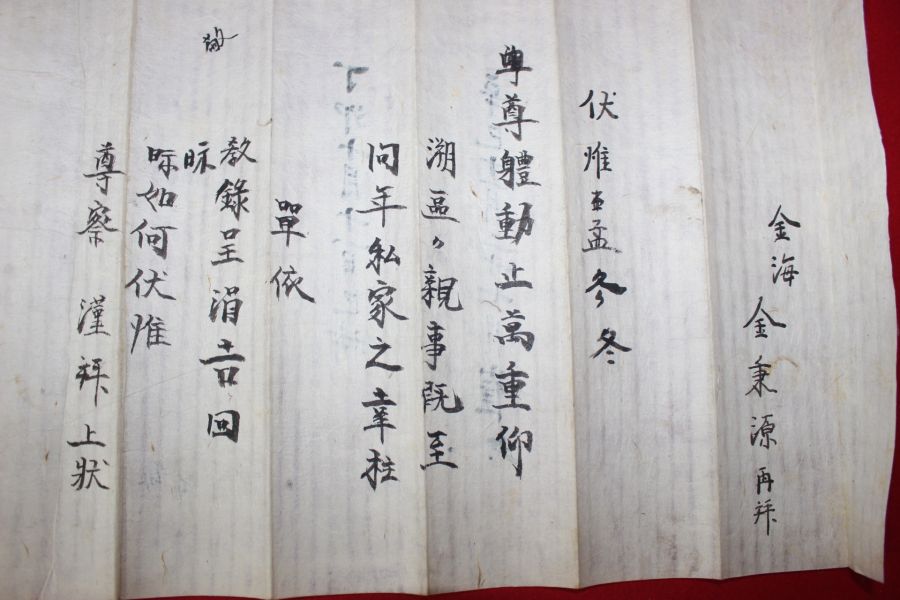 金海 金秉源 再拜
伏惟孟冬冬
尊尊體動止萬重仰
溯區々親事既至
問年私家之幸柱
單依
教錄呈涓吉回
眎
眎如何伏惟
尊察 謹拜上狀